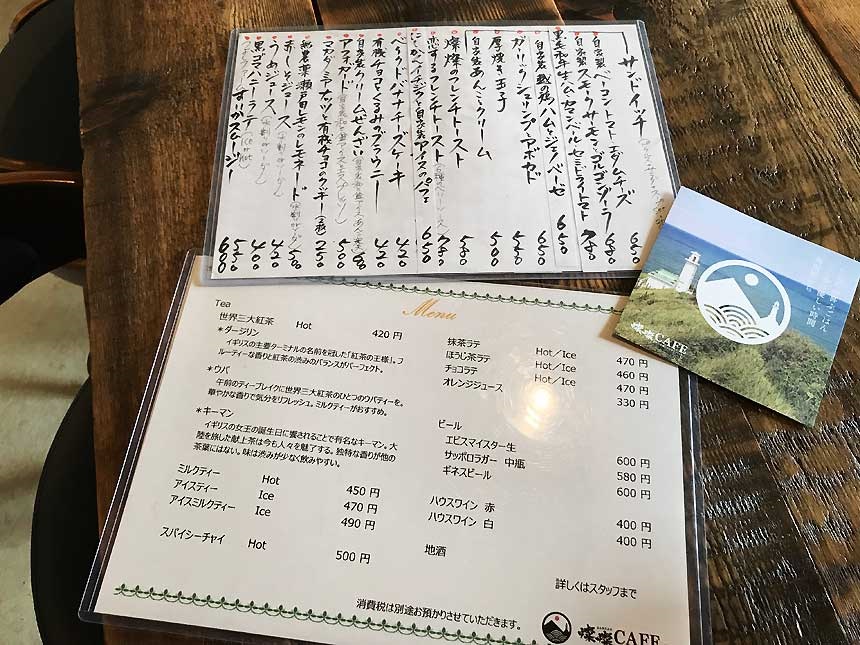 サンドイッチ
自家製ベーコントマト エダムチーズ 680
自家製スモークサーモン、ゴルゴンゾーラ 780
黒毛和牛生ハム カマンベール セミドライトマト
自家製 鶏ハムとジェノベーゼ 650
ガーリックシュリンプ アボカド 650
厚焼き玉子 550
自家製あんこクリーム 500
燦燦のフレンチトースト 580
恋するフレンチトースト 780
自家製アイスのパフェ 650
ベイクドバナナチーズケーキ 420
有機チョコとくるみのブラウニー 420
自家製クリームぜんざい
アフォガード 500
マカダミアナッツと有機チョコのクッキー 250
無農薬 瀬戸田レモンのレモネード
赤しそジュース 420
うめジュース 400
黒ゴマハニーラテ (Ice or Hot) 550
すいかスムージー 600
Menu
Tea
世界三大紅茶 Hot 420 円
*ダージリン
イギリスの主要ターミナルの名前を冠した「紅茶の王様」。フ
ルーティーな香りと紅茶の渋みのバランスがパーフェクト。
*ウバ
午前のティーブレイクに世界三大紅茶のひとつのウバティーを。
華やかな香りで気分をリフレッシュ。ミルクティーがおすすめ。
*キーマン
イギリスの女王の誕生日に饗されることで有名なキーマン。大
陸を旅した献上茶は今も人々を魅了する。独特な香りが他の
茶葉にはない。味は渋みが少なく飲みやすい。
ミルクティー Hot 450 円
アイスティー Ice 470 円
アイスミルクティー Ice 490 円
スパイシーチャイ Hot 500 円
抹茶ラテ Hot／Ice 470 円
ほうじ茶ラテ Hot／Ice 460 円
チョコラテ Hot／Ice 470 円
オレンジジュース 330 円
ビール
エビスマイスター生 600 円
サッポロラガー 中瓶 580 円
ギネスビール 600 円
ハウスワイン 赤 400 円
ハウスワイン 白 400 円
地酒
詳しくはスタッフまで
消費税は別途お預かりさせていただきます。
燦燦CAFE
燦燦CAFE